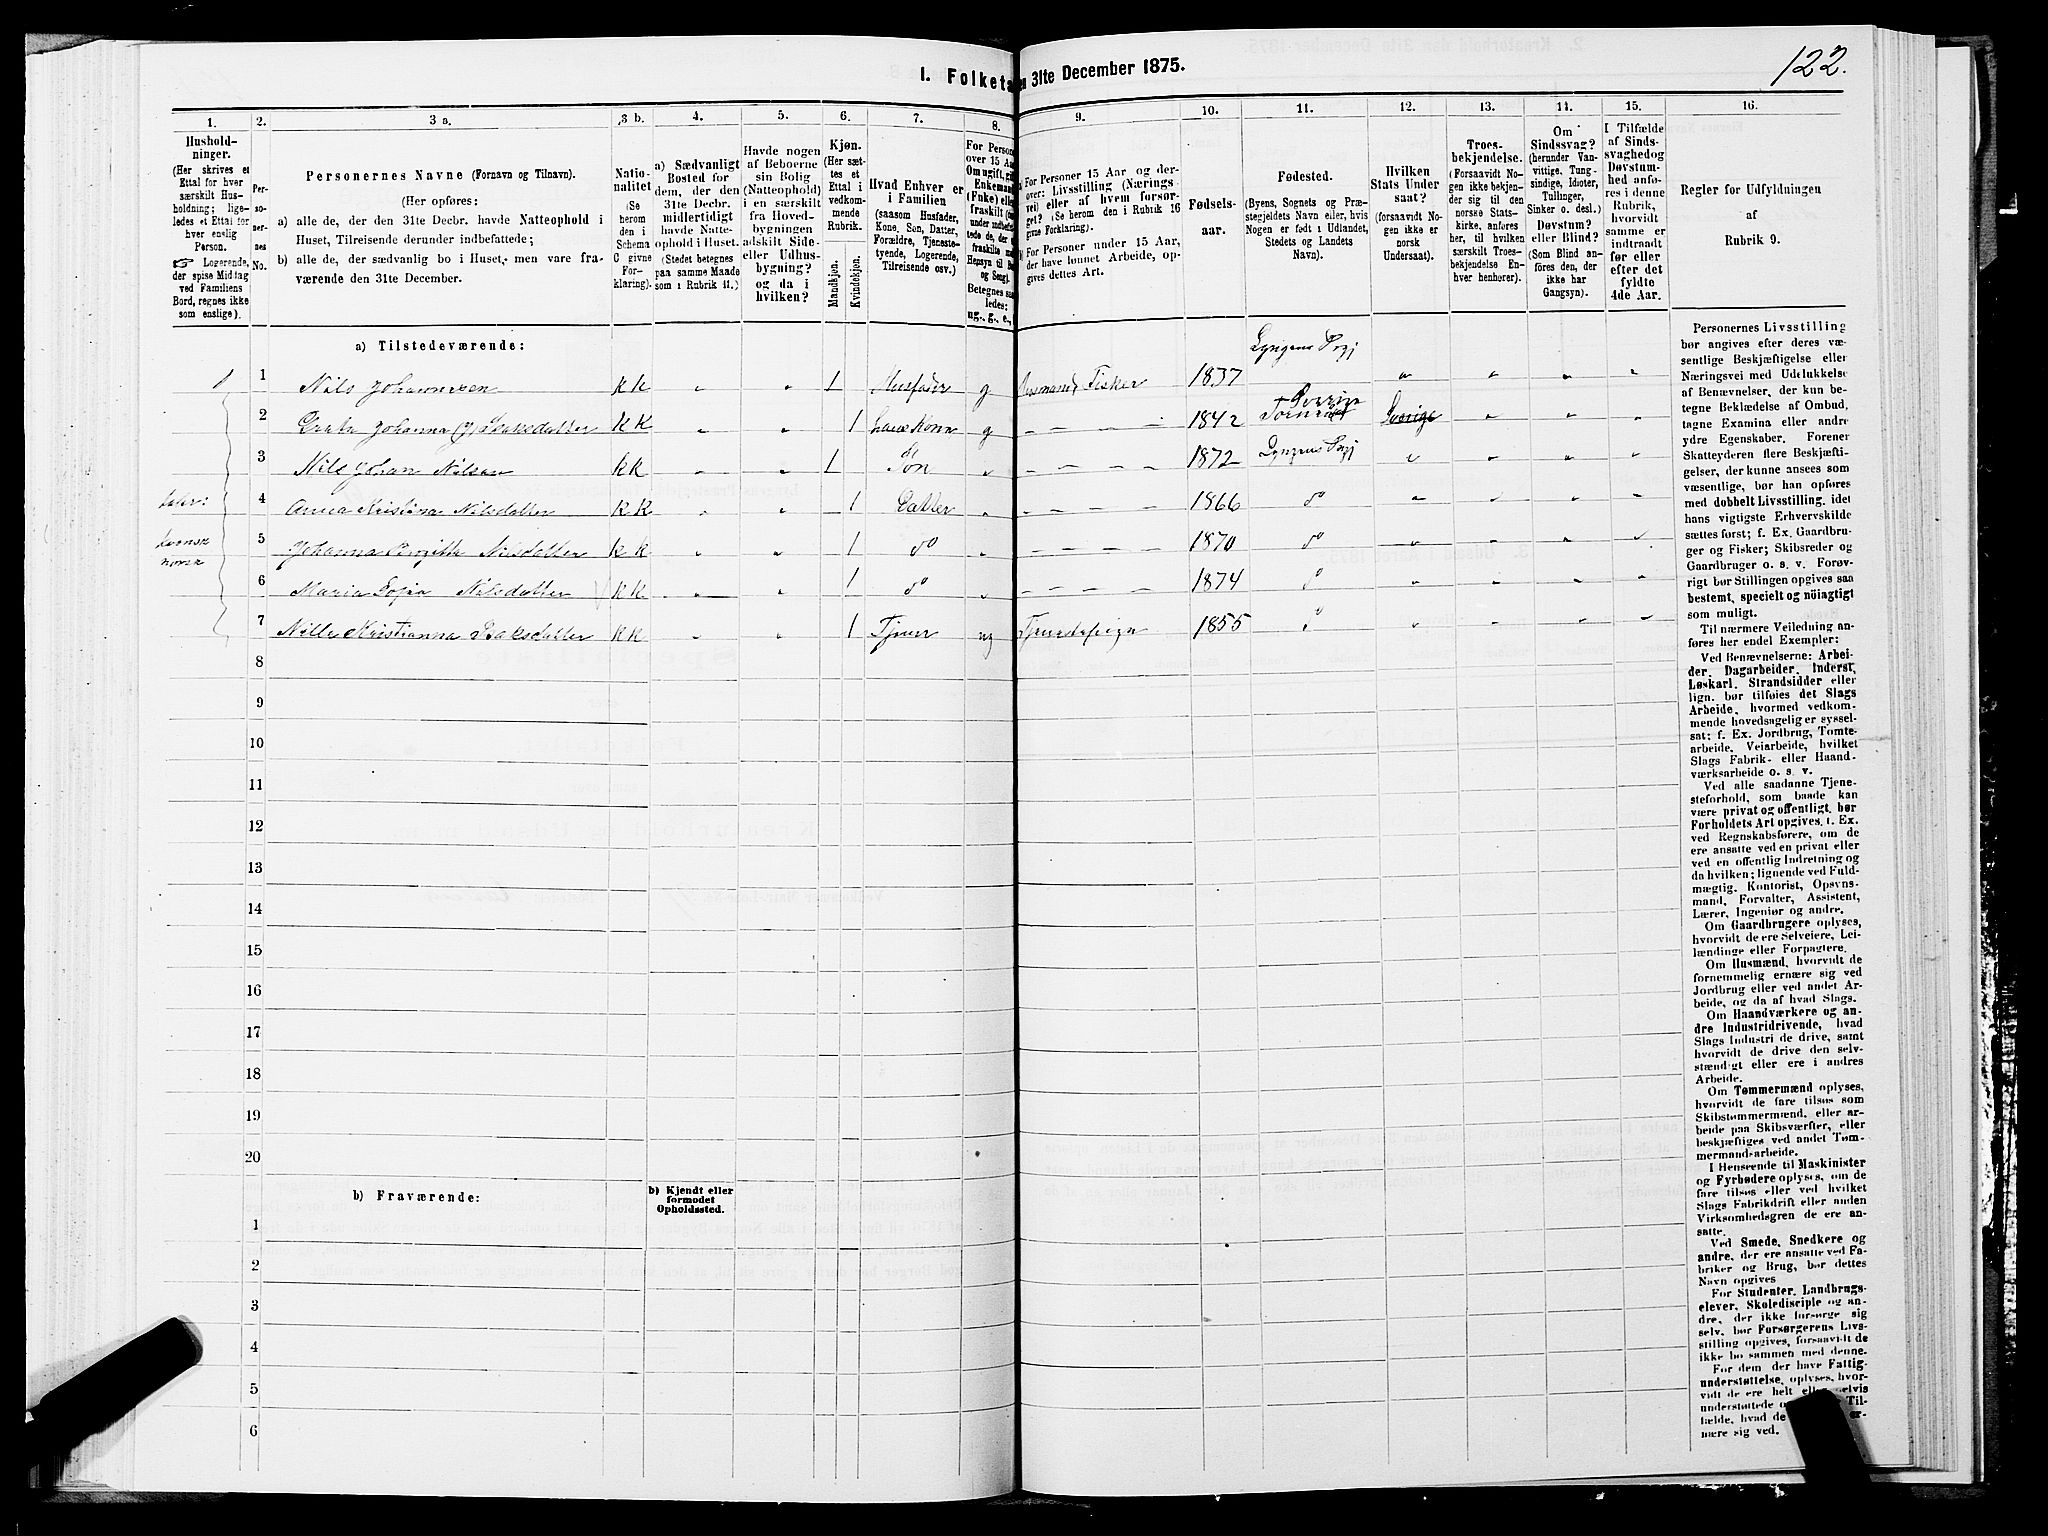 122.
I. Folketæ
n 31te December 1875.
1.
Hushold-
ninger.
(Her skrives et
Ettal for hver
særskilt Hus-
holdning; lige-
ledes et Ettal for
hver enslig
Person.
☞ Logerende,
der spise Middag
ved Familiens
Bord, regnes ikke
som enslige).
2.
Per-
so-
ner-
nes
No.
3 a.
Personernes Navne (Fornavn og Tilnavn).
(Her opføres:
a) alle de, der den 31te Decbr. havde Natteophold i
Huset, Tilreisende derunder indbefattede;
b) alle de, der sædvanlig bo i Huset, men vare fra-
værende den 31te December.
3 b.
Natio-
nalitet
(Se
herom
den i
Schema
C givne
For-
klaring).
4.
a) Sædvanligt
Bosted for
dem, der den
31te Decbr.
midlertidigt
havde Natte-
ophold i Huset.
(Stedet betegnes
paa samme Maade
som i Rubrik 11.)
5.
Havde nogen
af Beboerne
sin Bolig
(Natteophold)
i en særskilt
fra Hoved-
bygningen
adskilt Side-
eller Udhus-
bygning?
og da i
hvilken?
6.
Kjøn.
(Her sæt-
tes et
Ettal i
vedkom-
mende
Rubrik.
Mandkjøn.
Kvindekjøn.
7.
Hvad Enhver er
i Familien
(saasom Husfader,
Kone, Søn, Datter,
Forældre, Tjeneste-
tyende, Logerende,
Tilreisende osv.)
8.
For Persone
over 15 Aar
Om ugift, gif
Enkemand
(Enke) elle
fraskilt
9.
For Personer 15 Aar og der-
over: Livsstilling (Nærings-
vei) eller af hvem forsør-
get? (Se herom den i Rubrik 16
givne Forklaring).
b) For Personer under 15 Aar,
der have lønnet Arbeide, op-
gives dettes Art.
10.
Fødsels-
aar.
11.
Fødested.
(Byens, Sognets og Præ-
stegjeldets Navn eller, hvis
Nogen er født i Udlandet,
Stedets og Landets
Navn).
12.
Hvilken
Stats Under
saat?
(forsaavidt No-
gen ikke er
norsk
Undersaat).
13.
Troes-
bekjendelse.
(Forsaavidt No-
gen ikke bekjen-
der sig til den
norske Stats-
kirke, anføres
her, til hvilken
særskilt Troes-
bekjendelse En-
hver henhører).
14.
Om
Sindssvag?
(herunder Van-
vittige, Tung-
sindige, Idioter,
Tullinger,
Sinker o. desl.)
Døvstum?
eller Blind?
(Som Blind an-
føres den, der
ikke har
Gangsyn).
15.
I Tilfælde
af Sinds-
svaghed og
Døvstum-
hed anfø-
res i denne
Rubrik,
hvorvidt
samme er
indtraadt
før eller
efter det
fyldte
4de Aar.
16.
Regler for Udfyldningen
af
Rubrik 9.
a) Tilstedeværende:
1 1 Nils Johannesen KK " " 1 Husfader g Husmand, Fisker 1837 Lyngens Prgj " " " "
2 Johanna KK " " 1 Kone g 1842 Torneå Sverige " " "
3 Nils Johan Nilsen KK " " 1 Søn " 1872 Lyngens Prgj " " " "
4 Anna Kristina Nilsdatter KK " " 1 Datter " 1866 do " " " "
taler:
kvensk
norsk
5 Johanna Birgitta Nilsdatter KK " " 1 do " 1870 do " " " "
6 Maria Sofia Nilsdatter KK " " 1 do " 1874 do " " " "
7 Nille Kristianna Isaksdatter KK " " 1 Tjener ug Tjenestepige 1855 do " " " "
8
9
10
11
12
13
14
15
16
17
18
19
20
b) Fraværende:
b) Kjendt eller
formodet
Opholdssted.
1
2
3
4
5
6
Personernes Livsstilling
bør angives efter deres væ-
sentlige Beskjæftigelse eller
Næringsvei med Udelukkelse
af Benævnelser, der kun be-
tegne Beklædelse af Ombud,
tagne Examina eller andre
ydre Egenskaber. Forener
Skatteyderen flere Beskjæfti-
gelser, der kunne ansees som
væsentlige, bør han opføres
med dobbelt Livsstilling, idet
hans vigtigste Erhvervskilde
sættes først; f. Ex. Gaardbru-
ger og Fisker; Skibsreder og
Gaardbruger o. s. v. Forøv-
rigt bør Stillingen opgives saa
bestemt, specielt og nöiagtigt
som muligt.
Til nærmere Veiledning an-
føres her endel Exempler:
Ved Benævnelserne: Arbei-
der, Dagarbeider, Inderst,
Løskarl, Strandsidder eller
lign. bør tilføies det Slags
Arbeide, hvormed vedkom-
mende hovedsagelig er syssel-
sat; f. Ex. Jordbrug, Tomte-
arbeide, Veiarbeide, hvilket
Slags Fabrik- eller Haand-
værksarbeide o. s. v.
Ved alle saadanne Tjene-
steforhold, som baade kan
være privat og offentligt, bør
Forholdets Art opgives, f. Ex.
ved Regnskabsførere, om de
ere ansatte ved en privat eller
ved en offentlig Indretning og
da hvilken; lignende ved Fuld-
mægtig, Kontorist, Opsyns-
mand, Forvalter, Assistent,
Lærer, Ingeniør og andre.
Om Gaardbrugere oplyses,
hvorvidt de ere Selveiere, Lei-
lændinge eller Forpagtere.
Om Husmænd, hvorvidt de
fornemmelig ernære sig ved
Jordbrug eller ved andet Ar-
beide, og da af hvad Slags.
Om Haandværkere og an-
dre Industridrivende, hvad
Slags Industri de drive, samt
hvorvidt de drive den selv-
stændigt eller ere i andres
Arbeide.
Om Tømmermænd oplyses,
hvorvidt de fare tilsøs som
Skibstømmermænd, eller ar-
beide paa Skibsværfter, eller
beskjæftiges ved andet Tøm-
mermandsarbeide.
I Henseende til Maskinister
og Fyrbødere oplyses, om de
fare tilsøs eller ved hvilket
Slags Fabrikdrift eller anden
Virksomhedsgren de ere an-
satte.
Ved Smede, Snedkere og
andre, der ere ansatte ved Fa-
briker og Brug, bør dettes
Navn opgives
For Studenter, Landbrugs-
elever, Skoledisciple og an-
dre, der ikke forsørge sig
selv, bør Forsørgerens Livs-
stilling opgives, forsaavidt de
ikke bo sammen med denne.
For dem der have Fattig-
understøttelse, oplyses, hvor-
vidt de ere helt eller delvis
understøttede
fælde, hvad de
nære sig ved.